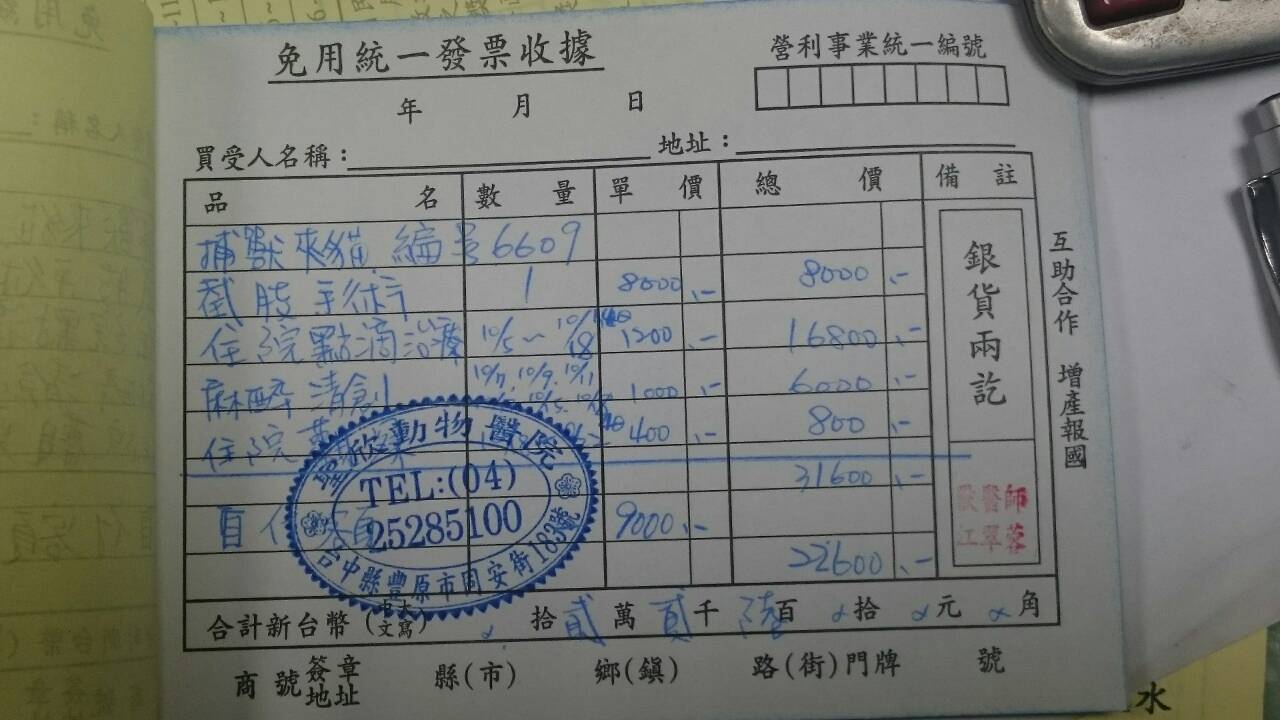 免用統一發票收據
營利事業統一編號
年 月 日
買受人名稱： 地址：
品名 數量 單價 總價 備註
捕獸夾貓 編號6609
截肢手術 1 8000.- 8000.-
住院點滴治療 10/5～10/18 1200.- 16800.-
麻醉清創 10/7.10/9.10/11 1000.- 6000.-
住院 400.- 800.-
31600.-
自付 9000.-
22600.-
銀貨兩訖
獸醫師
江翠蓉
互助合作 增產報國
欣動物醫院
TEL:(04)
25285100
台中縣豐原市固安街183號
合計新台幣(中文大寫) 拾貳萬貳千陸百 拾 元 角
商號簽章地址 縣(市) 鄉(鎮) 路(街)門牌 號
水